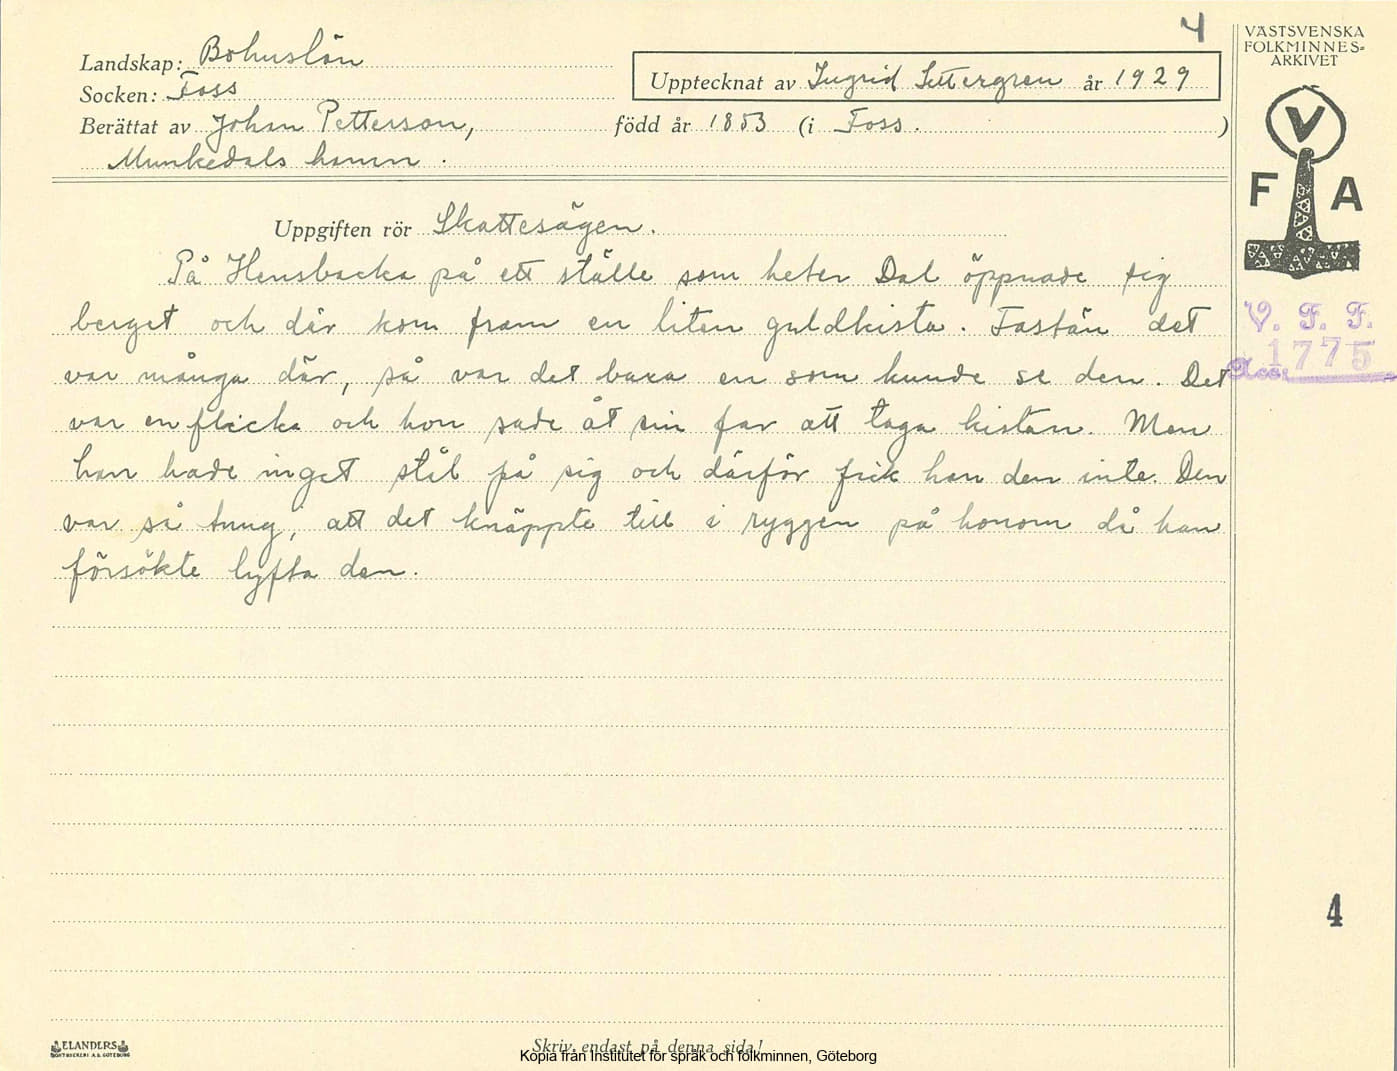 4
Landskap: Bohuslän
Socken: Foss
Upptecknat av Ingrid Settergren år 1929
Berättat av Johan Petterson, född år 1853 (i Foss.)
Munkedals hamn.
Uppgiften rör Skattesägen.
På Hensbacka på ett ställe som heter Dal öppnade sig
berget och där kom fram en liten guldkista. Fastän det
var många där, så var det bara en som kunde se den. Det
var en flicka och hon sade åt sin far att taga kistan. Men
han hade inget stål på sig och därför fick han den inte. Den
var så tung, att det knäppte till i ryggen på honom då han
försökte lyfta den.
VÄSTSVENSKA
FOLKMINNES=
ARKIVET
V
F A
V. F. F.
Acc. 1775
4
ELANDERS
BOKTRYCKERI A.B. GÖTEBORG
Skriv endast på denna sida!
Kopia från Institutet för språk och folkminnen, Göteborg